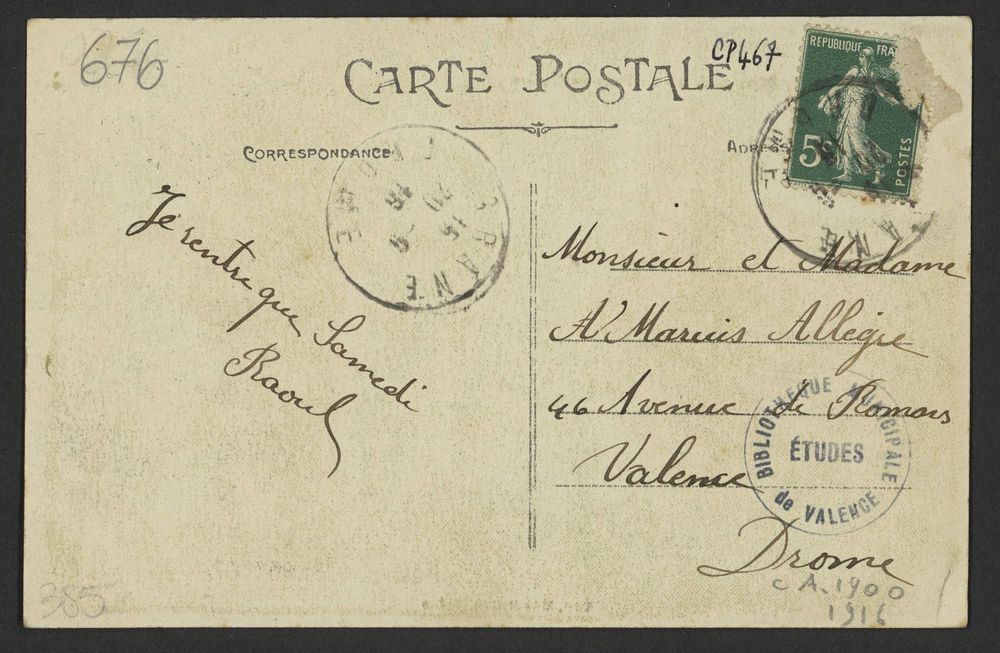 676
CARTE POSTALE
CP467
REPUBLIQUE FRA
5
POSTES
CORRESPONDANCE
ADRE
GRANE
DROME
15
16
Je rentre que Samedi
Raoul
Monsieur et Madame
Marius Allégre
46 Avenue de Romans
Valence
Drome
BIBLIOTHEQUE MUNICIPALE
ÉTUDES
de VALENCE
CA.1900
1916
385